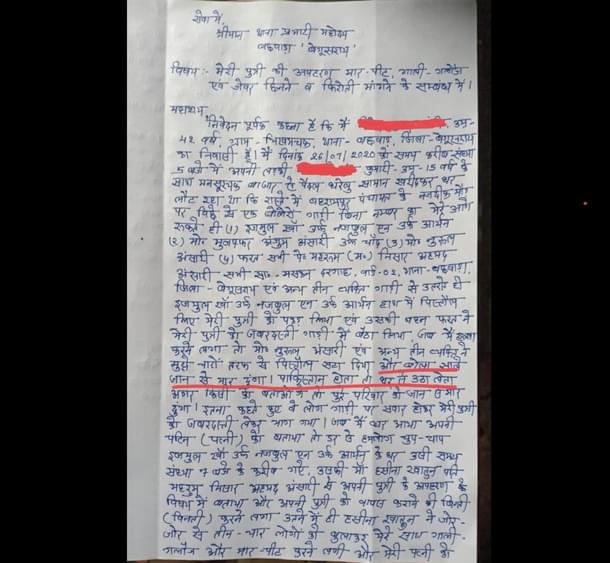 सेवा में,
श्रीमान थाना प्रभारी महोदय
बछवाड़ा 'बेगूसराय'
विषय :- मेरी पुत्री की अपहरण मार-पीट, गाली-गलौज
एवं जेवर छिनने व फिरौती मांगने के सम्बन्ध में।
महाशय
निवेदन पूर्वक कहना है कि मैं उम्र-
42 वर्ष, ग्राम- भिखमचक, थाना- बछवाड़ा, जिला- बेगूसराय
का निवासी हूँ। मैं दिनांक 26/07/2020 को समय करीब संध्या
5 बजे में अपनी लड़की कुमारी- उम्र- 15 वर्ष के
साथ मंसूरचक बाजार से पैदल घरेलु सामान खरीदकर घर
लौट रहा था कि रास्ते में बहरामपुर पंचायत के नजदीक मेन
पर पिछे से एक बोलेरो गाड़ी बिना नम्बर का मेरे आगे
रूकते ही (1) इजमुल खाँ उर्फ नजमुल एन उर्फ आर्यन
(2) मो० मुजफ्फर अंजुम अंसारी उर्फ चाँद (3) मो० नुरूल
अंसारी (4) फरत सभी पे० महरूम (म०) निसार अहमद
अंसारी सभी सा०- मसऊन दरगाह, वार्ड-02, थाना-बछवाड़ा,
जिला- बेगूसराय एवं अन्य तीन व्यक्ति गाड़ी से उतरते ही
इजमुल खाँ उर्फ नजमुल एन उर्फ आर्यन हाथ में पिस्तौल
लिए मेरी पुत्री को पकड़ लिया एवं उसकी बहन फरत ने
मेरी पुत्री को जबरदस्ती गाड़ी में बैठा लिया। जब मैं हल्ला
करने लगा तो मो० नुरूल अंसारी एवं अन्य तीन व्यक्ति ने
मुझे चारों तरफ से पिस्तौल सटा दिया और बोला साले
जान से मार दूंगा पाकिस्तान होता तो घर से उठा लेता
अगर किसी को बताओगे तो पुरे परिवार को जान से मार
दुंगा। इतना कहते हुए वे लोग गाड़ी पर सवार होकर मेरी पुत्री
को जबरदस्ती लेकर भाग गया। जब मैं घर आया अपनी
पत्नि (पत्नी) को बताया तो डर से हमलोग चुप-चाप
इजमुल खाँ उर्फ नजमुल एन उर्फ आर्यन के घर उसी समय
संध्या 7 बजे के करीब गए, उसकी माँ हसीना खातुन पति
महरूम निसार अहमद अंसारी से अपनी पुत्री के अपहरण के
विषय में बताया और अपनी पुत्री को वापस कराने की बिनती
(विनती) करने लगा उतने में ही हसीना खातुन ने जोर-
जोर से तीन-चार लोगों को बुलाकर मेरे साथ गाली-
गलौज और मार-पीट करने लगी और मेरी पत्नी को